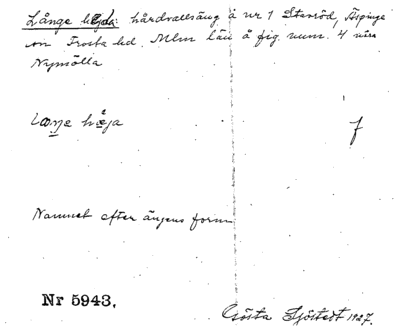 Långe höjda: hårdvallsäng å nr 1 Starröd, Äspinge
sn Frosta hd. Mlm län å fig. num. 4 nära
Nymölla
f
Namnet efter ängens form
Nr 5943.
Gösta Sjöstedt 1927.